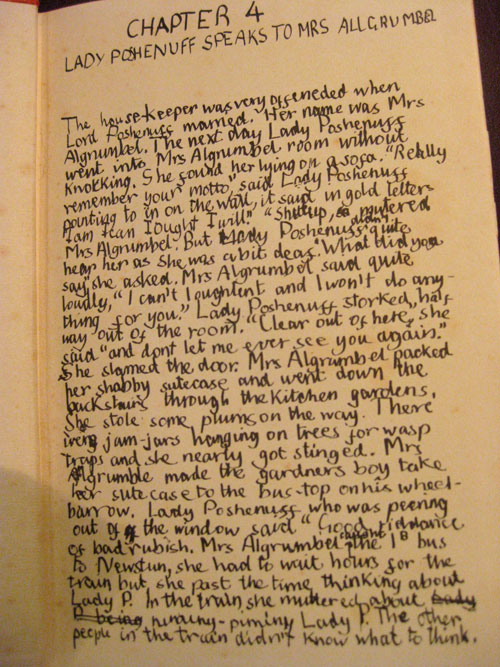 CHAPTER 4
LADY POSHENUFF SPEAKS TO MRS ALLGRUMBEL
The house-keeper was very offeneded when
Lord Poshenuff married. Her name was Mrs
Algrumbel. The next day Lady Poshenuff
went into Mrs Algrumbel room without
knokking. She found her lying on a sofa. "Really
remember your motto", said Lady Poshenuff
pointing to in on the wall, it said in gold letters
I am I can I ought I will." "Shutup, mutered
Mrs Algrumbel. But Lady Poshenuff didn't quite
hear her as she was a bit deaf. "What did you
say" she asked. Mrs Algrumbel said quite
loudly, "I can't I oughtent and I won't do any-
thing for you." Lady Poshenuff storked, half
way out of the room. "Clear out of here, she
said "and dont let me ever see you again."
She slamed the door. Mrs Algrumbel packed
her shabby sutecase and went down the
backstairs through the kitchen gardens.
She stole some plums on the way. There
were jam-jars hanging on trees for wasp
traps and she nearly got stinged. Mrs
Algrumble made the gardners boy take
her sutecase to the bus-top on his wheel-
barrow. Lady Poshenuff who was peering
out of the window said "Good riddance
of bad rubish. Mrs Algrumbel caught the 18 bus
to Newstun, she had to wait hours for the
train but she past the time thinking about
Lady P. In the train she muttered about Lady
P being niminy-piminy Lady P. The other
people in the train didn't know what to think.